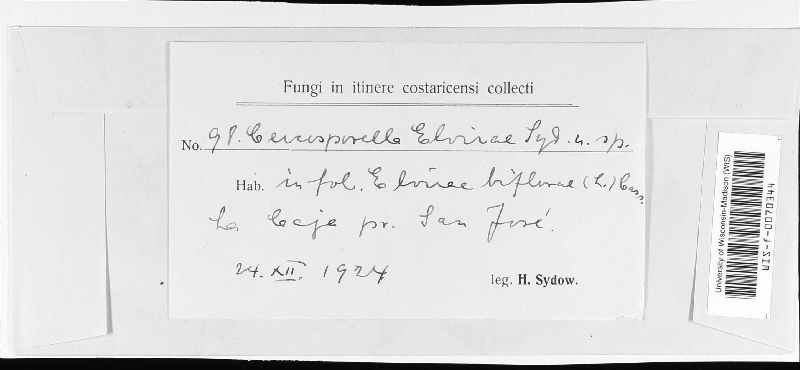 Fungi in itinere costaricensi collecti
No. 98. Cercosporella Elvirae Syd. n. sp.
Hab. in fol. Elvirae biflorae (L.) Cass.
La Caja pr. San José.
24. XII. 1924
leg. H. Sydow.
University of Wisconsin-Madison (WIS)
WIS-F-0070344